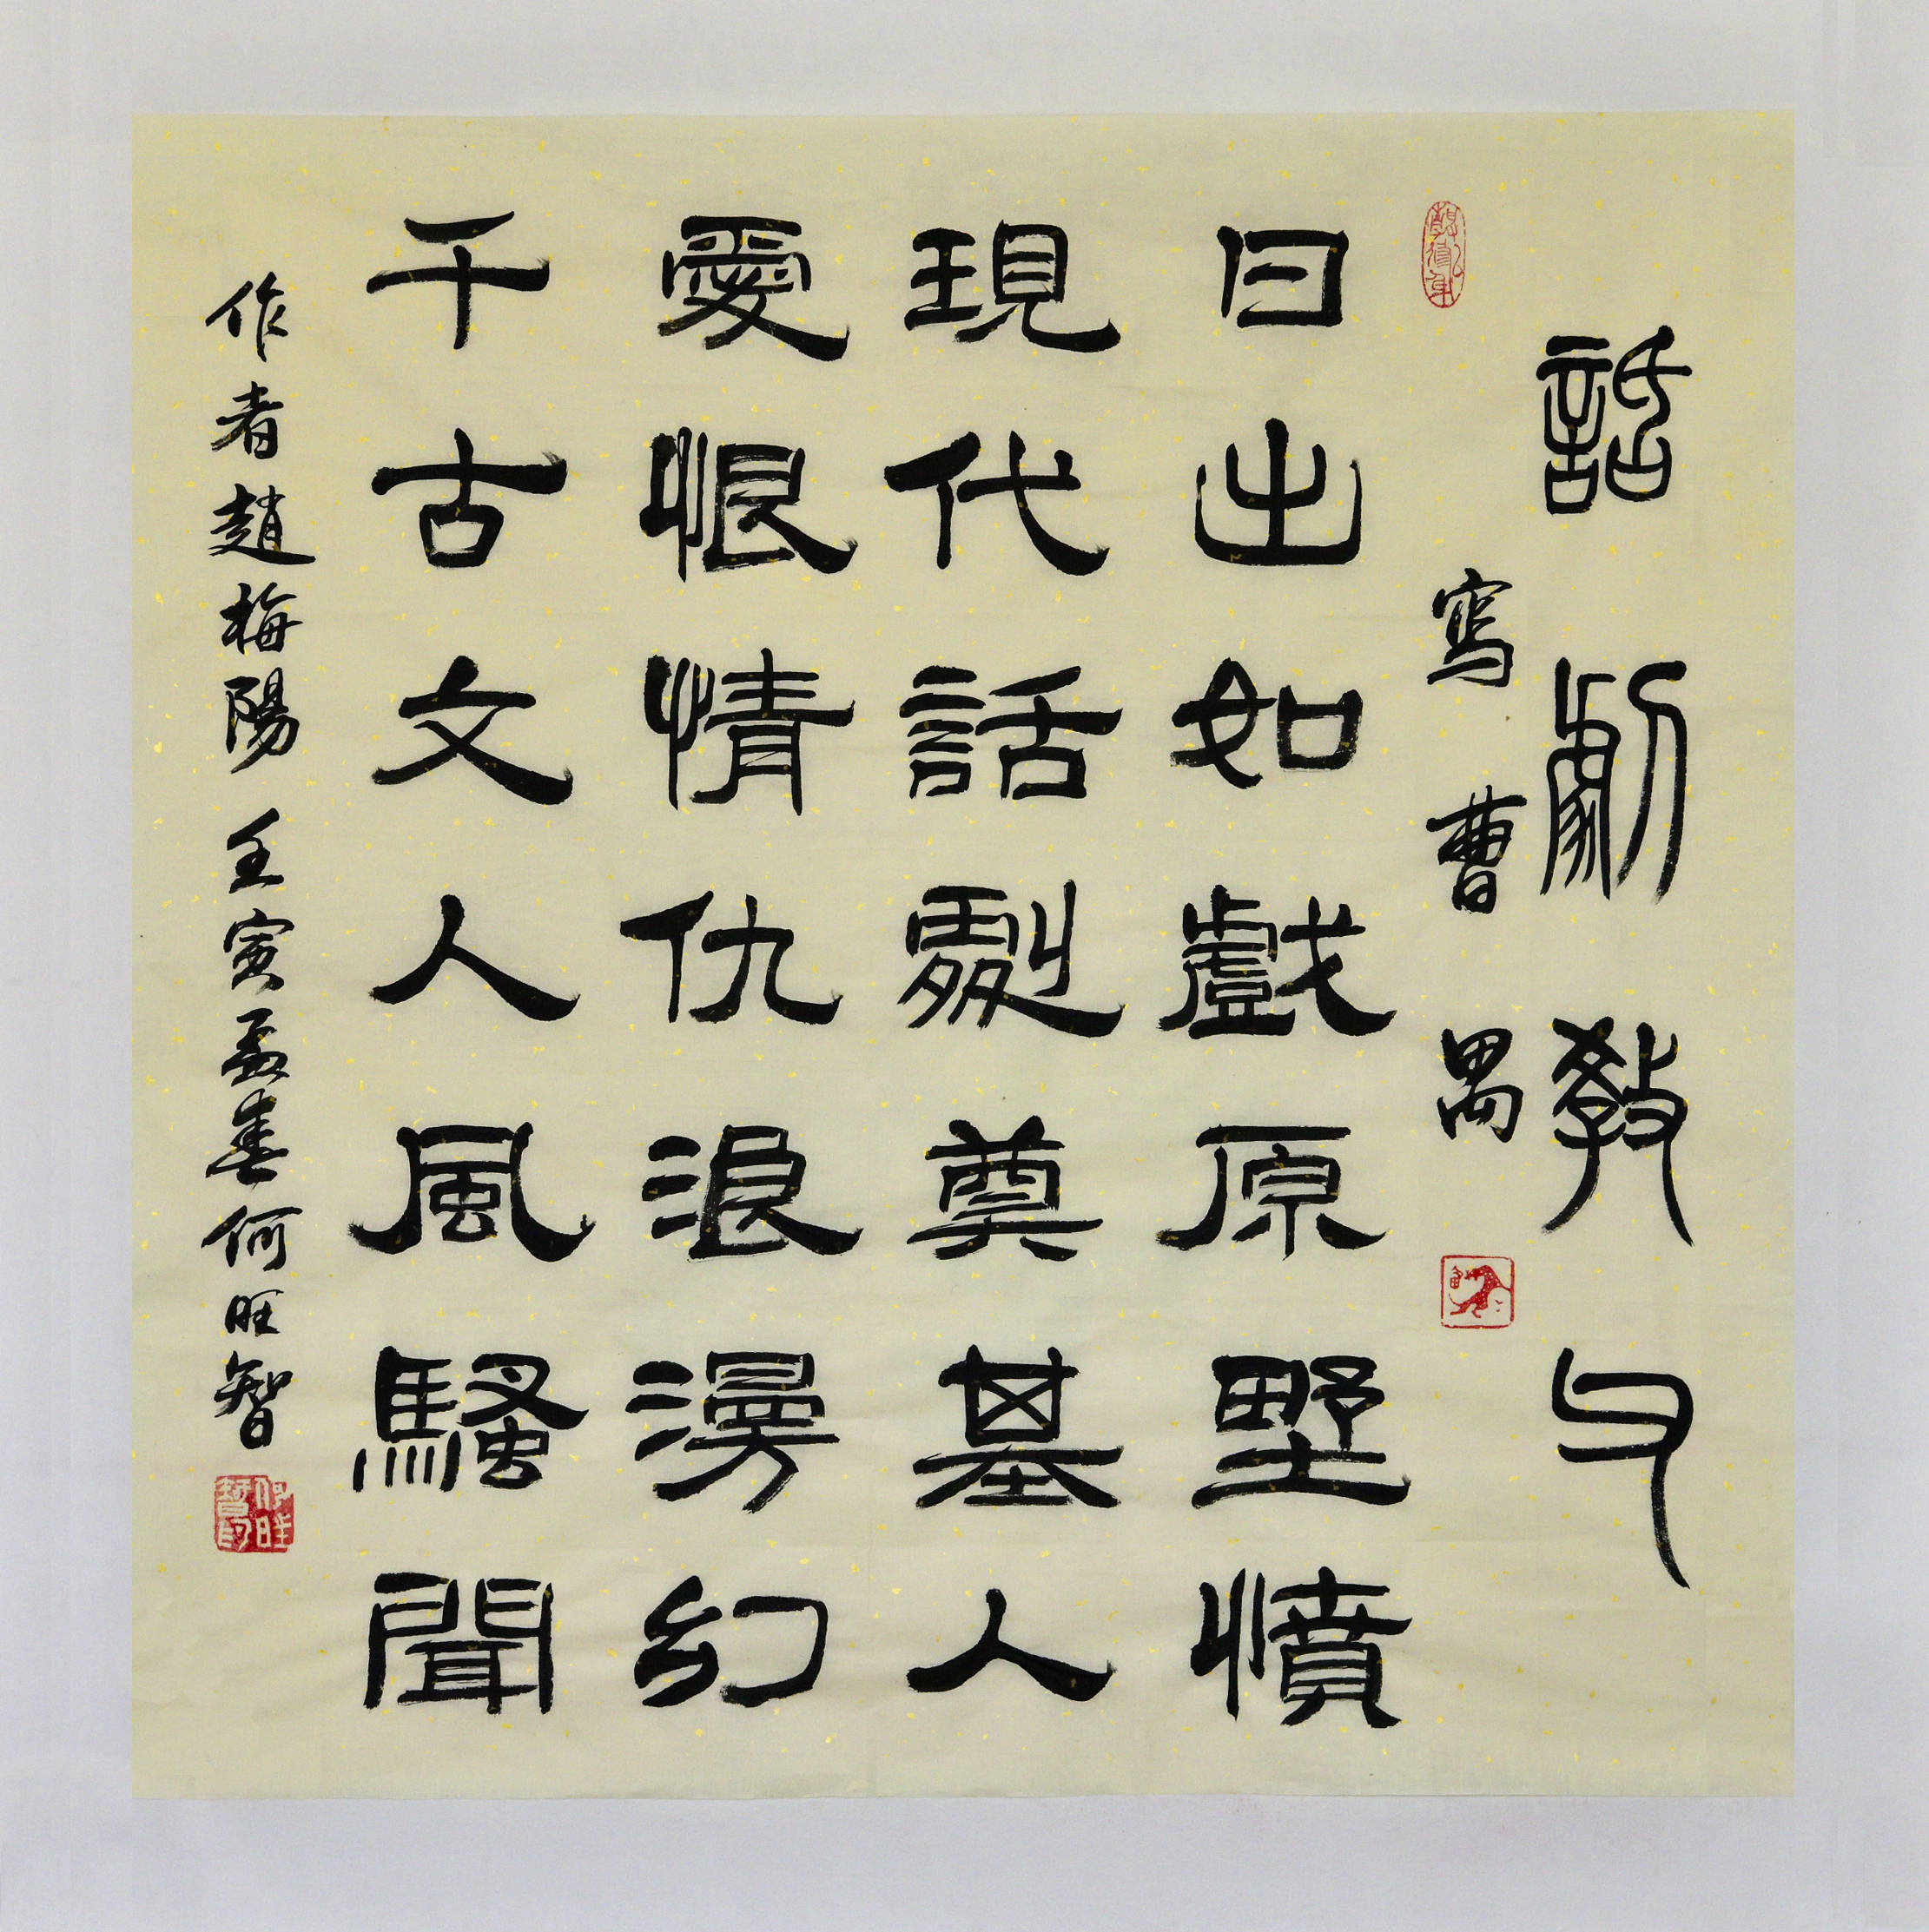 話劇教父
寫曹禺
日出如戲原野憤
現代話劇奠墓人
愛恨情仇浪漫幻
千古文人風騷聞
作者趙梅陽壬寅孟春何旺智